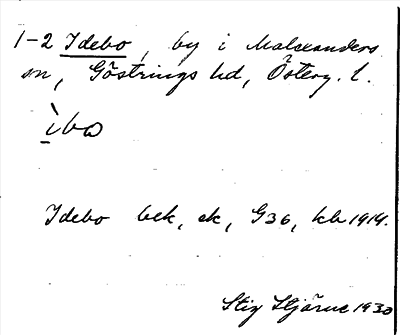 1-2 Idebo, by i Malexanders
sn, Göstrings hd, Österg. l.
ìbo
Idebo bek, ek, G36, kb 1914.
Stig Hjärne 1930